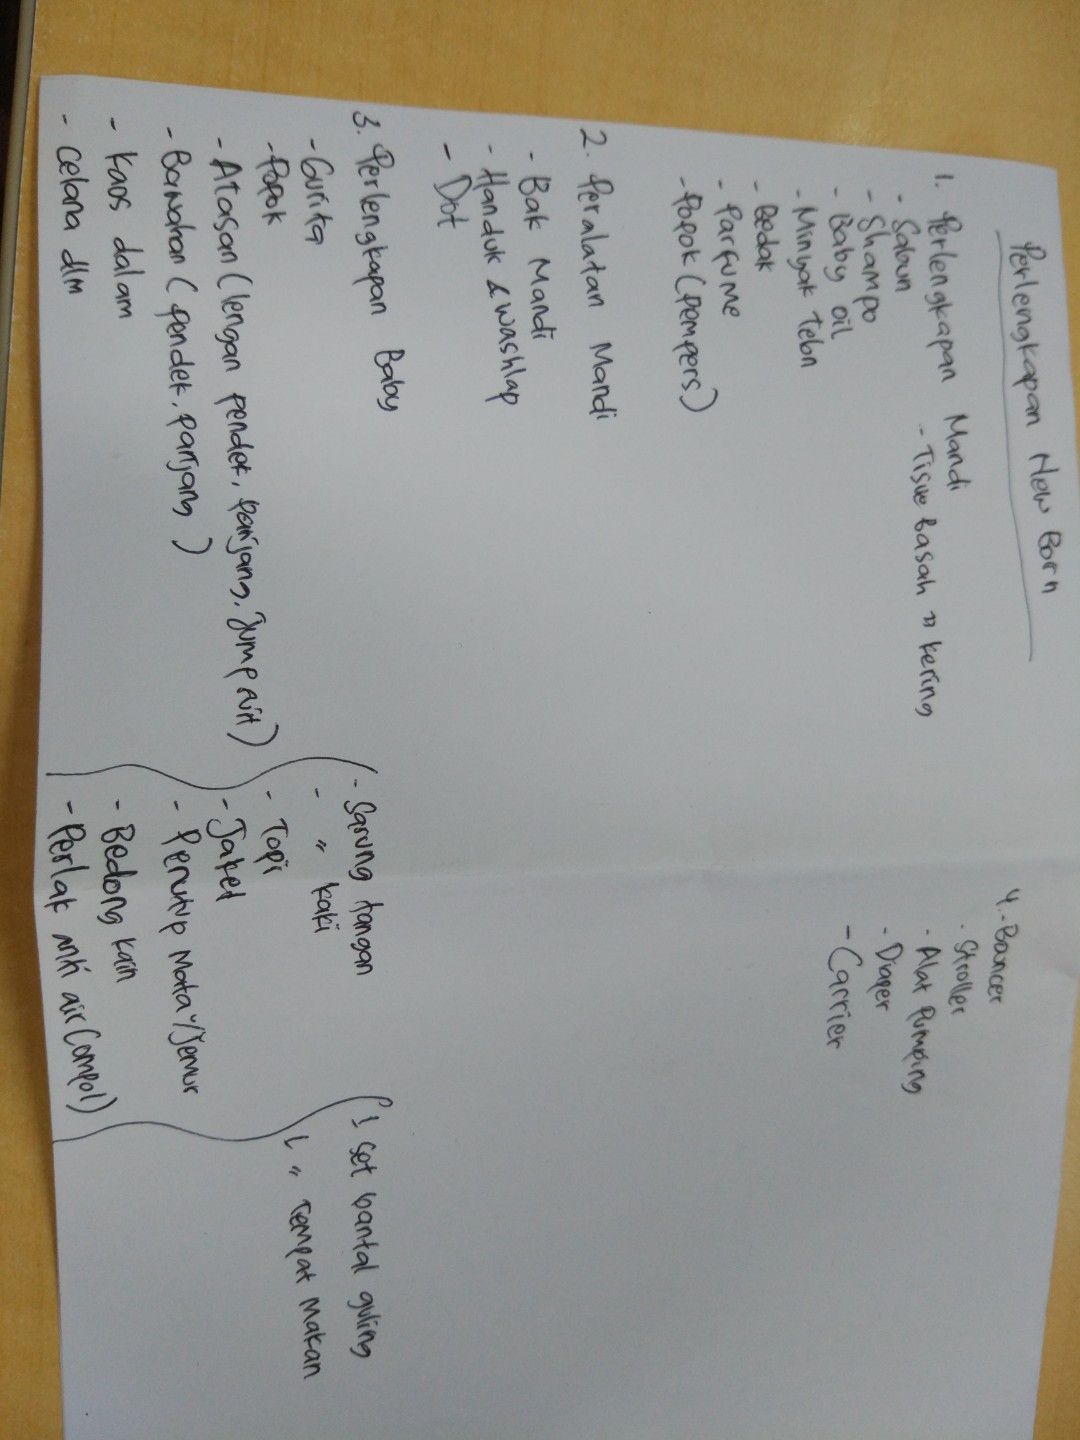 Perlengkapan New Born
1. Perlengkapan Mandi
- Sabun
- Shampo
- Baby oil
- Minyak telon
- Bedak
- Parfume
- Popok (Pempers)
- Tisue basah n kering
2. Peralatan Mandi
- Bak Mandi
- Handuk & washlap
- Dot
3. Perlengkapan Baby
- Gurita
- Popok
- Atasan (lengan pendek, panjang, Jumpsuit)
- Bawahan (pendek, panjang)
- Kaos dalam
- Celana dlm
- Sarung tangan
- " kaki
- Topi
- Jaket
- Penutup Mata u/ Jemur
- Bedong kain
- Perlak anti air (ompol)
1 set bantal guling
1 " Tempat Makan
4. - Bouncer
- Stroller
- Alat Pumping
- Diaper
- Carrier